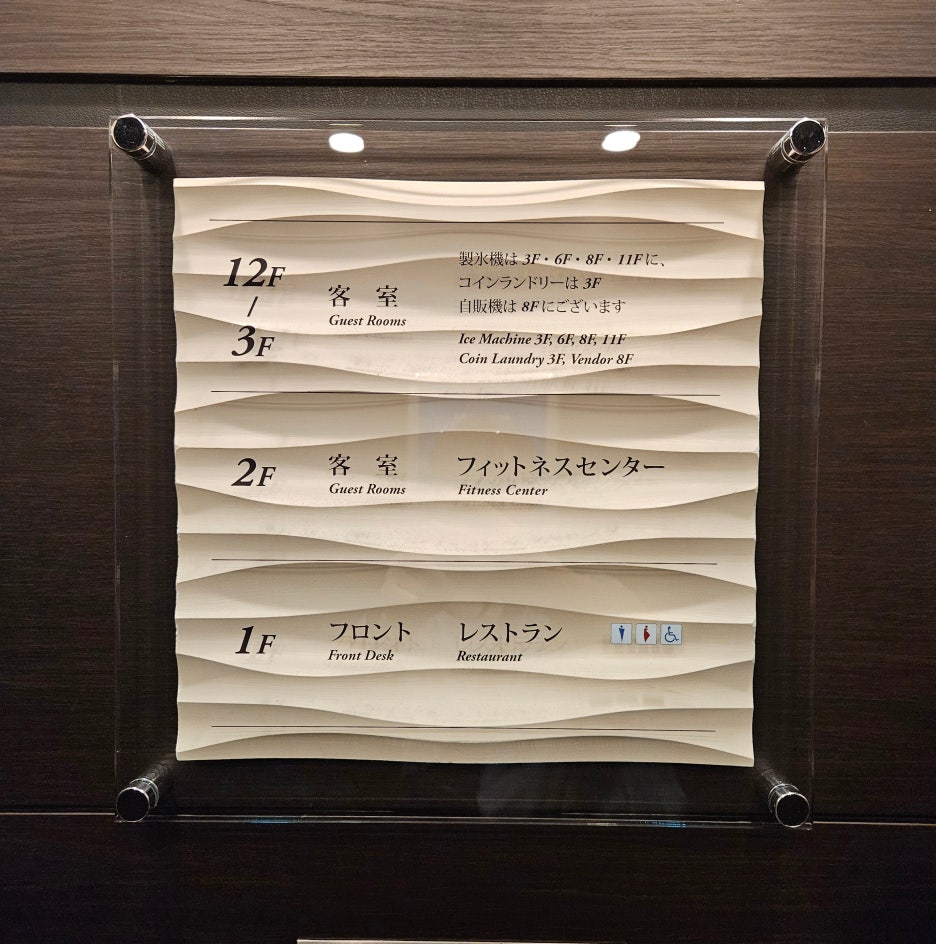 12F
/
3F
客 室
Guest Rooms
製氷機は 3F・6F・8F・11Fに、
コインランドリーは 3F
自販機は 8Fにございます
Ice Machine 3F, 6F, 8F, 11F
Coin Laundry 3F, Vendor 8F
2F
客 室
Guest Rooms
フィットネスセンター
Fitness Center
1F
フロント
Front Desk
レストラン
Restaurant